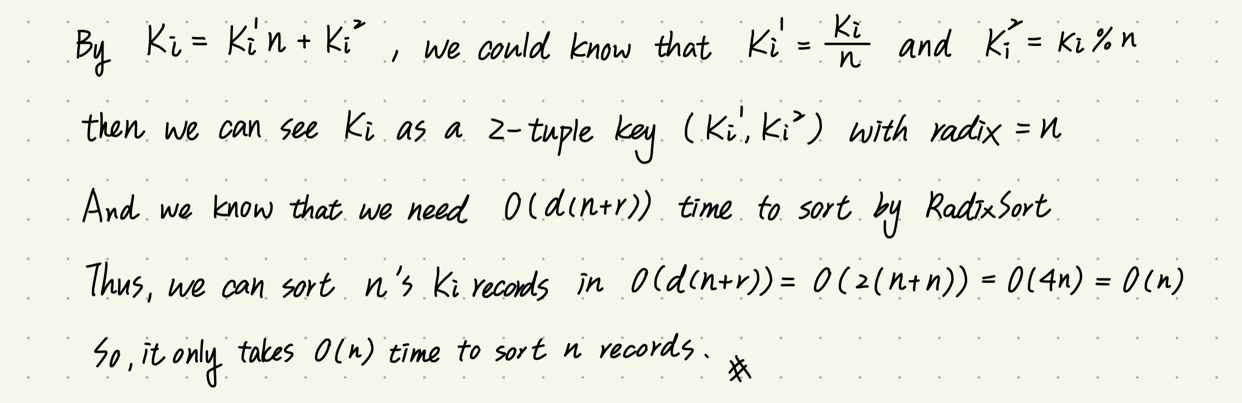 By Ki = Ki¹n + Ki² , we could know that Ki¹ = Ki/n and Ki² = Ki % n
then we can see Ki as a 2-tuple key (Ki¹, Ki²) with radix = n
And we know that we need O(d(n+r)) time to sort by RadixSort
Thus, we can sort n's Ki records in O(d(n+r)) = O(2(n+n)) = O(4n) = O(n)
So, it only takes O(n) time to sort n records. #